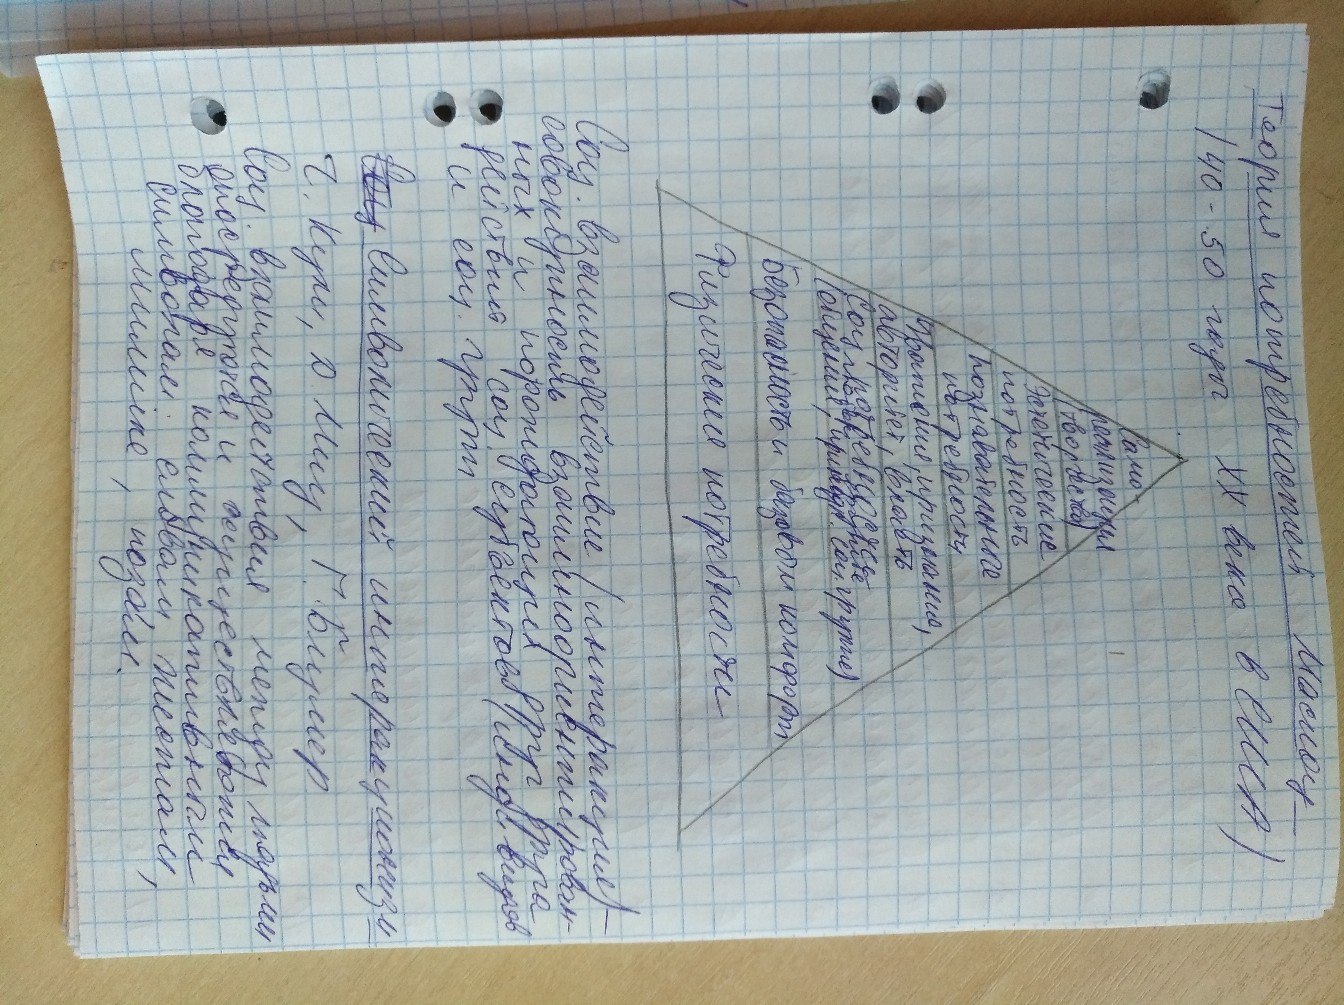 Теория потребностей Маслоу
(40-50 годы XX века в США)
Само-
реализация
(творчество)
Эстетические
потребность
Познавательные
потребности
Уважения, признания,
авторитет, власть
Соц. потребности
(общения, принадл. соц. группе)
Безопасность и базовый комфорт
Физические потребности
Соц. взаимодействие (интеракция) –
совокупность взаимоориентирован-
ных и порождающих друг друга
действий соц. субъектов (индивидов
и соц. групп
Символический интеракционизм
Ч. Кули, Д. Мид, Г. Блумер
Соц. взаимодействия между людьми
опосредуются и осуществляются
благодаря коммуникативным
символам: словам, жестам,
мимике, позам.